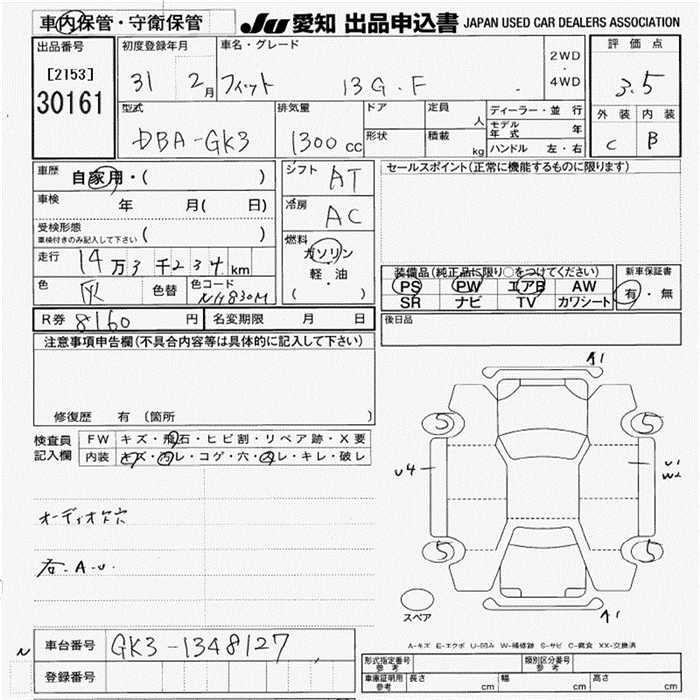 車内保管・守衛保管
JU 愛知 出品申込書 JAPAN USED CAR DEALERS ASSOCIATION
出品番号
[2153]
30161
初度登録年月
31 2月
車名・グレード
フィット 13G・F
2WD
・
4WD
評価点
3.5
外装 内装
C B
型式
DBA-GK3
排気量
1300cc
ドア
形状
定員
人
積載
kg
ディーラー・並行
モデル年式 年
ハンドル 左・右
車歴
自家用・( )
車検
年 月( 日)
受検形態
車検付きのみ記入して下さい ( )
走行 14万3千234km
色 灰 色替 色コード NH830M
シフト AT
冷房 AC
燃料
ガソリン
軽・油
( )
セールスポイント(正常に機能するものに限ります)
装備品(純正品に限り○をつけてください)
PS PW エアB AW
SR ナビ TV カワシート
新車保証書
有・無
後日品
R券 8160円 名変期限 月 日
注意事項申告欄(不具合内容等は具体的に記入して下さい)
修復歴 有 〔箇所 〕
検査員記入欄
FW キズ・飛石・ヒビ割・リペア跡・X要
内装 キズ・汚レ・コゲ・穴・スレ・キレ・破レ
オーディオ欠穴
右.A.U.
A1
5 5
U4
U1
W2
5 5
スペア
A1
A-キズ E-エクボ U-凹み W-補修跡 S-サビ C-腐食 XX-交換済
N 車台番号 GK3-1348127
登録番号
形式指定番号 参考
類別区分番号 参考
車庫証明用 参考
長さ cm 幅 cm 高さ cm